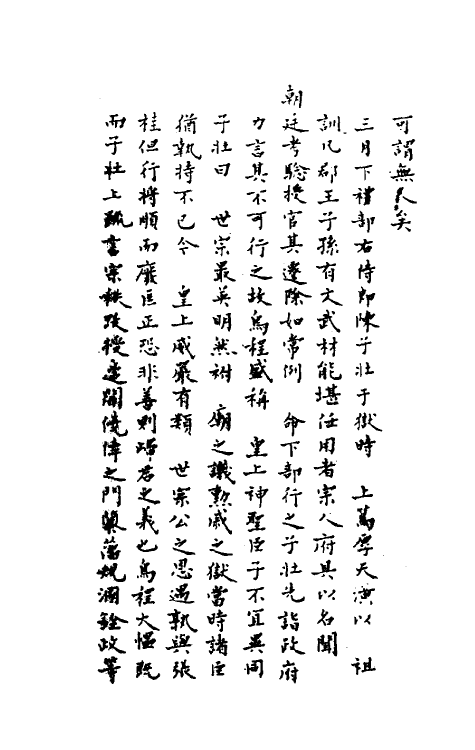 可謂無人矣
三月下禮部右侍郎陳子壯于獄時 上篤厚天潢以 祖
訓凡郡王子孫有文武材能堪任用者宗人府具以名聞
朝廷考驗授官其遷除如常例 命下部行之子壯先詣政府
力言其不可行之故烏程盛稱 皇上神聖臣子不宜異同
子壯曰 世宗最英明然祔 廟之議勲戚之獄當時諸臣
猶執持不已今 皇上威嚴有類 世宗公之恩遇孰與張
桂但行將順而廢匡正恐非善則歸君之義也烏程大愠既
而子壯上疏言宗秩改授適開僥倖之門隳藩規溷銓政等